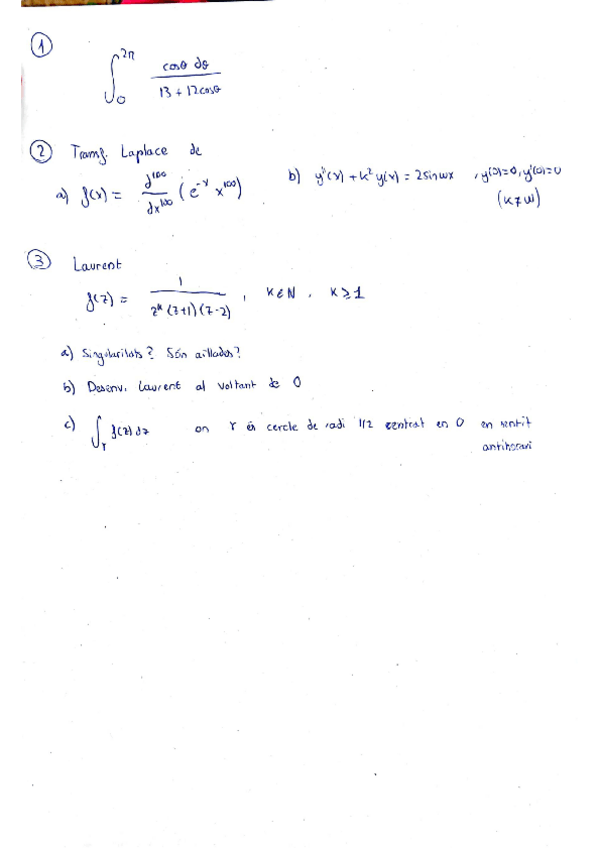 ①
∫₀^{2π} cosθ dθ / (13 + 12cosθ)
② Transf. Laplace de
a) f(x) = d^{100}/dx^{100} (e^{-x} x^{100})
b) y''(x) + k² y(x) = 2 sin wx , y(0)=0, y'(0)=0
(k ≠ w)
③ Laurent
f(z) = 1 / (z^k (z+1)(z-2)) , k ∈ N , k ≥ 1
a) Singularitats? Són aïllades?
b) Desenv. Laurent al voltant de 0
c) ∫_γ f(z) dz on γ és cercle de radi 1/2 centrat en 0 en sentit
antihorari